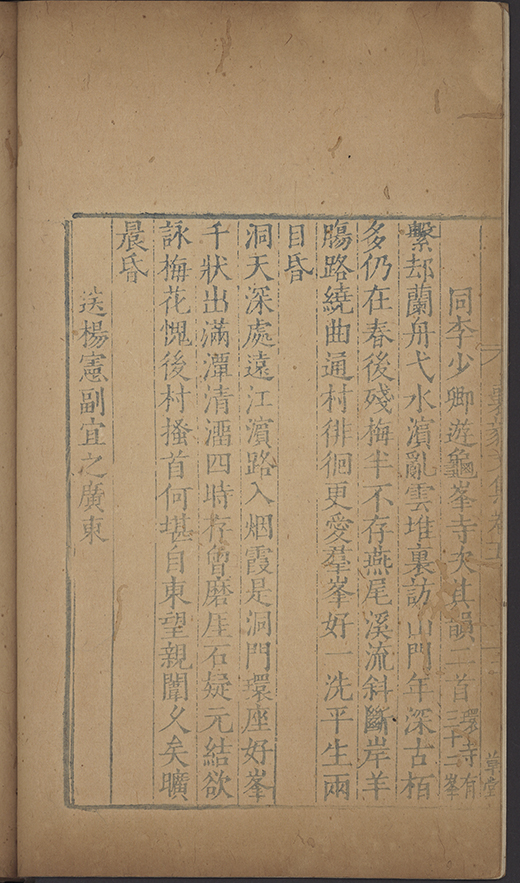 同李少卿遊龜峯寺次其韻二首環寺有三十二峯
繫却蘭舟弋水濵亂雲堆裏訪山門年深古栢
多仍在春後殘梅半不存燕尾溪流斜斷岸羊
腸路繞曲通村徘徊更愛羣峯好一洗平生兩
目昏
洞天深處遠江濵路入烟霞是洞門環座好峯
千狀出滿潭清溜四時存曾磨崖石疑元結欲
詠梅花愧後村搔首何堪自東望親闈久矣曠
晨昏
送楊憲副宜之廣東